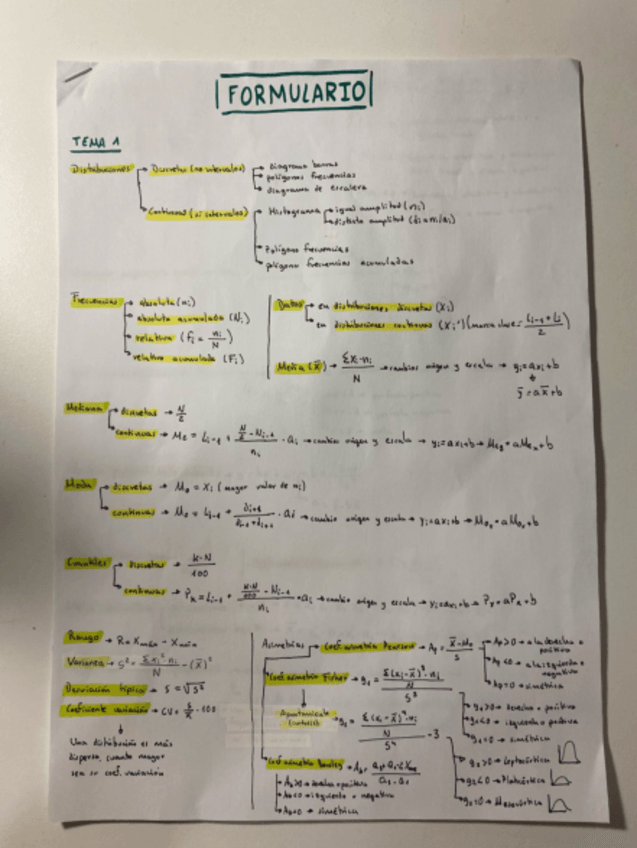 FORMULARIO
TEMA 1
Distribuciones → Discretas (no intervalos) → diagrama barras
→ polígonos frecuencias
→ diagrama de escalera
→ Continuas (sí intervalos) → Histograma → igual amplitud (ni)
→ distinta amplitud
→ Polígono frecuencias
→ polígono frecuencias acumuladas
Frecuencias → absoluta (ni)
→ absoluta acumulada (Ni)
→ relativa (fi = ni/N)
→ relativa acumulada (Fi)
Datos → en distribuciones discretas (xi)
→ en distribuciones continuas (xi') (marca clase = (Li-1 + Li)/2)
Media (x̄) → Σxi·ni/N → cambios origen y escala → yi = axi + b
ȳ = ax̄ + b
Mediana → discretas → N/2
→ continuas → Me = Li-1 + (N/2 - Ni-1)/ni · ai → cambio origen y escala → yi = axi + b → Mey = aMex + b
Moda → discretas → Mo = xi (mayor valor de ni)
→ continuas → Mo = Li-1 + di+1/(di-1 + di+1) · ai → cambio origen y escala → yi = axi + b → Moy = aMox + b
→ discretas → k·N/100
→ continuas → Pk = Li-1 + (k·N/100 - Ni-1)/ni · ai → cambio origen y escala → yi = axi + b → Py = aPx + b
Rango → R = xmáx - xmín
Varianza → S² = Σxi²·ni/N - (x̄)²
Desviación típica → S = √S²
Coeficiente variación → CV = S/x̄ · 100
Una distribución es más
dispersa, cuanto mayor
sea su coef. variación
Asimetrías → Coef. asimetría Pearson → Ap = (x̄ - Mo)/S → Ap>0 → a la derecha o
positiva
→ Ap<0 → a la izquierda o
negativa
→ Ap=0 → simétrica
Coef asimetría Fisher → g1 = (Σ(xi - x̄)³·ni/N)/S³
→ g1>0 → derecha o positiva
→ g1<0 → izquierda o
→ g1=0 → simétrica
g2 = (Σ(xi - x̄)⁴·ni/N)/S⁴ - 3
→ g2>0 → Leptocúrtica
→ g2<0 → Platicúrtica
→ g2=0 → Mesocúrtica
Coef asimetría Bowley → Ab =
→ Ab>0 → derecha o positiva
→ Ab<0 → izquierda o negativa
→ Ab=0 → simétrica